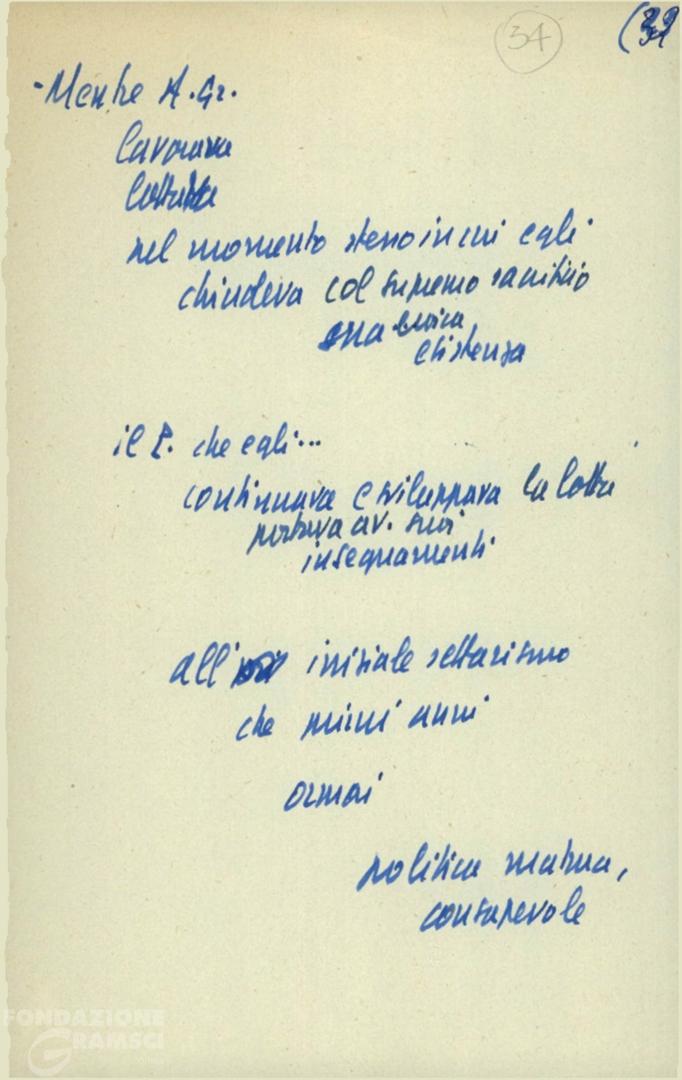 34
- Mentre A. Gr.
lavorava
lottava
nel momento stesso in cui egli
chiudeva col supremo sacrificio
una eroica
esistenza
il P. che egli...
continuava e sviluppava la lotta
portava av. suoi
insegnamenti
all' iniziale settarismo
che primi anni
ormai
politica matura,
consapevole
FONDAZIONE
GRAMSCI